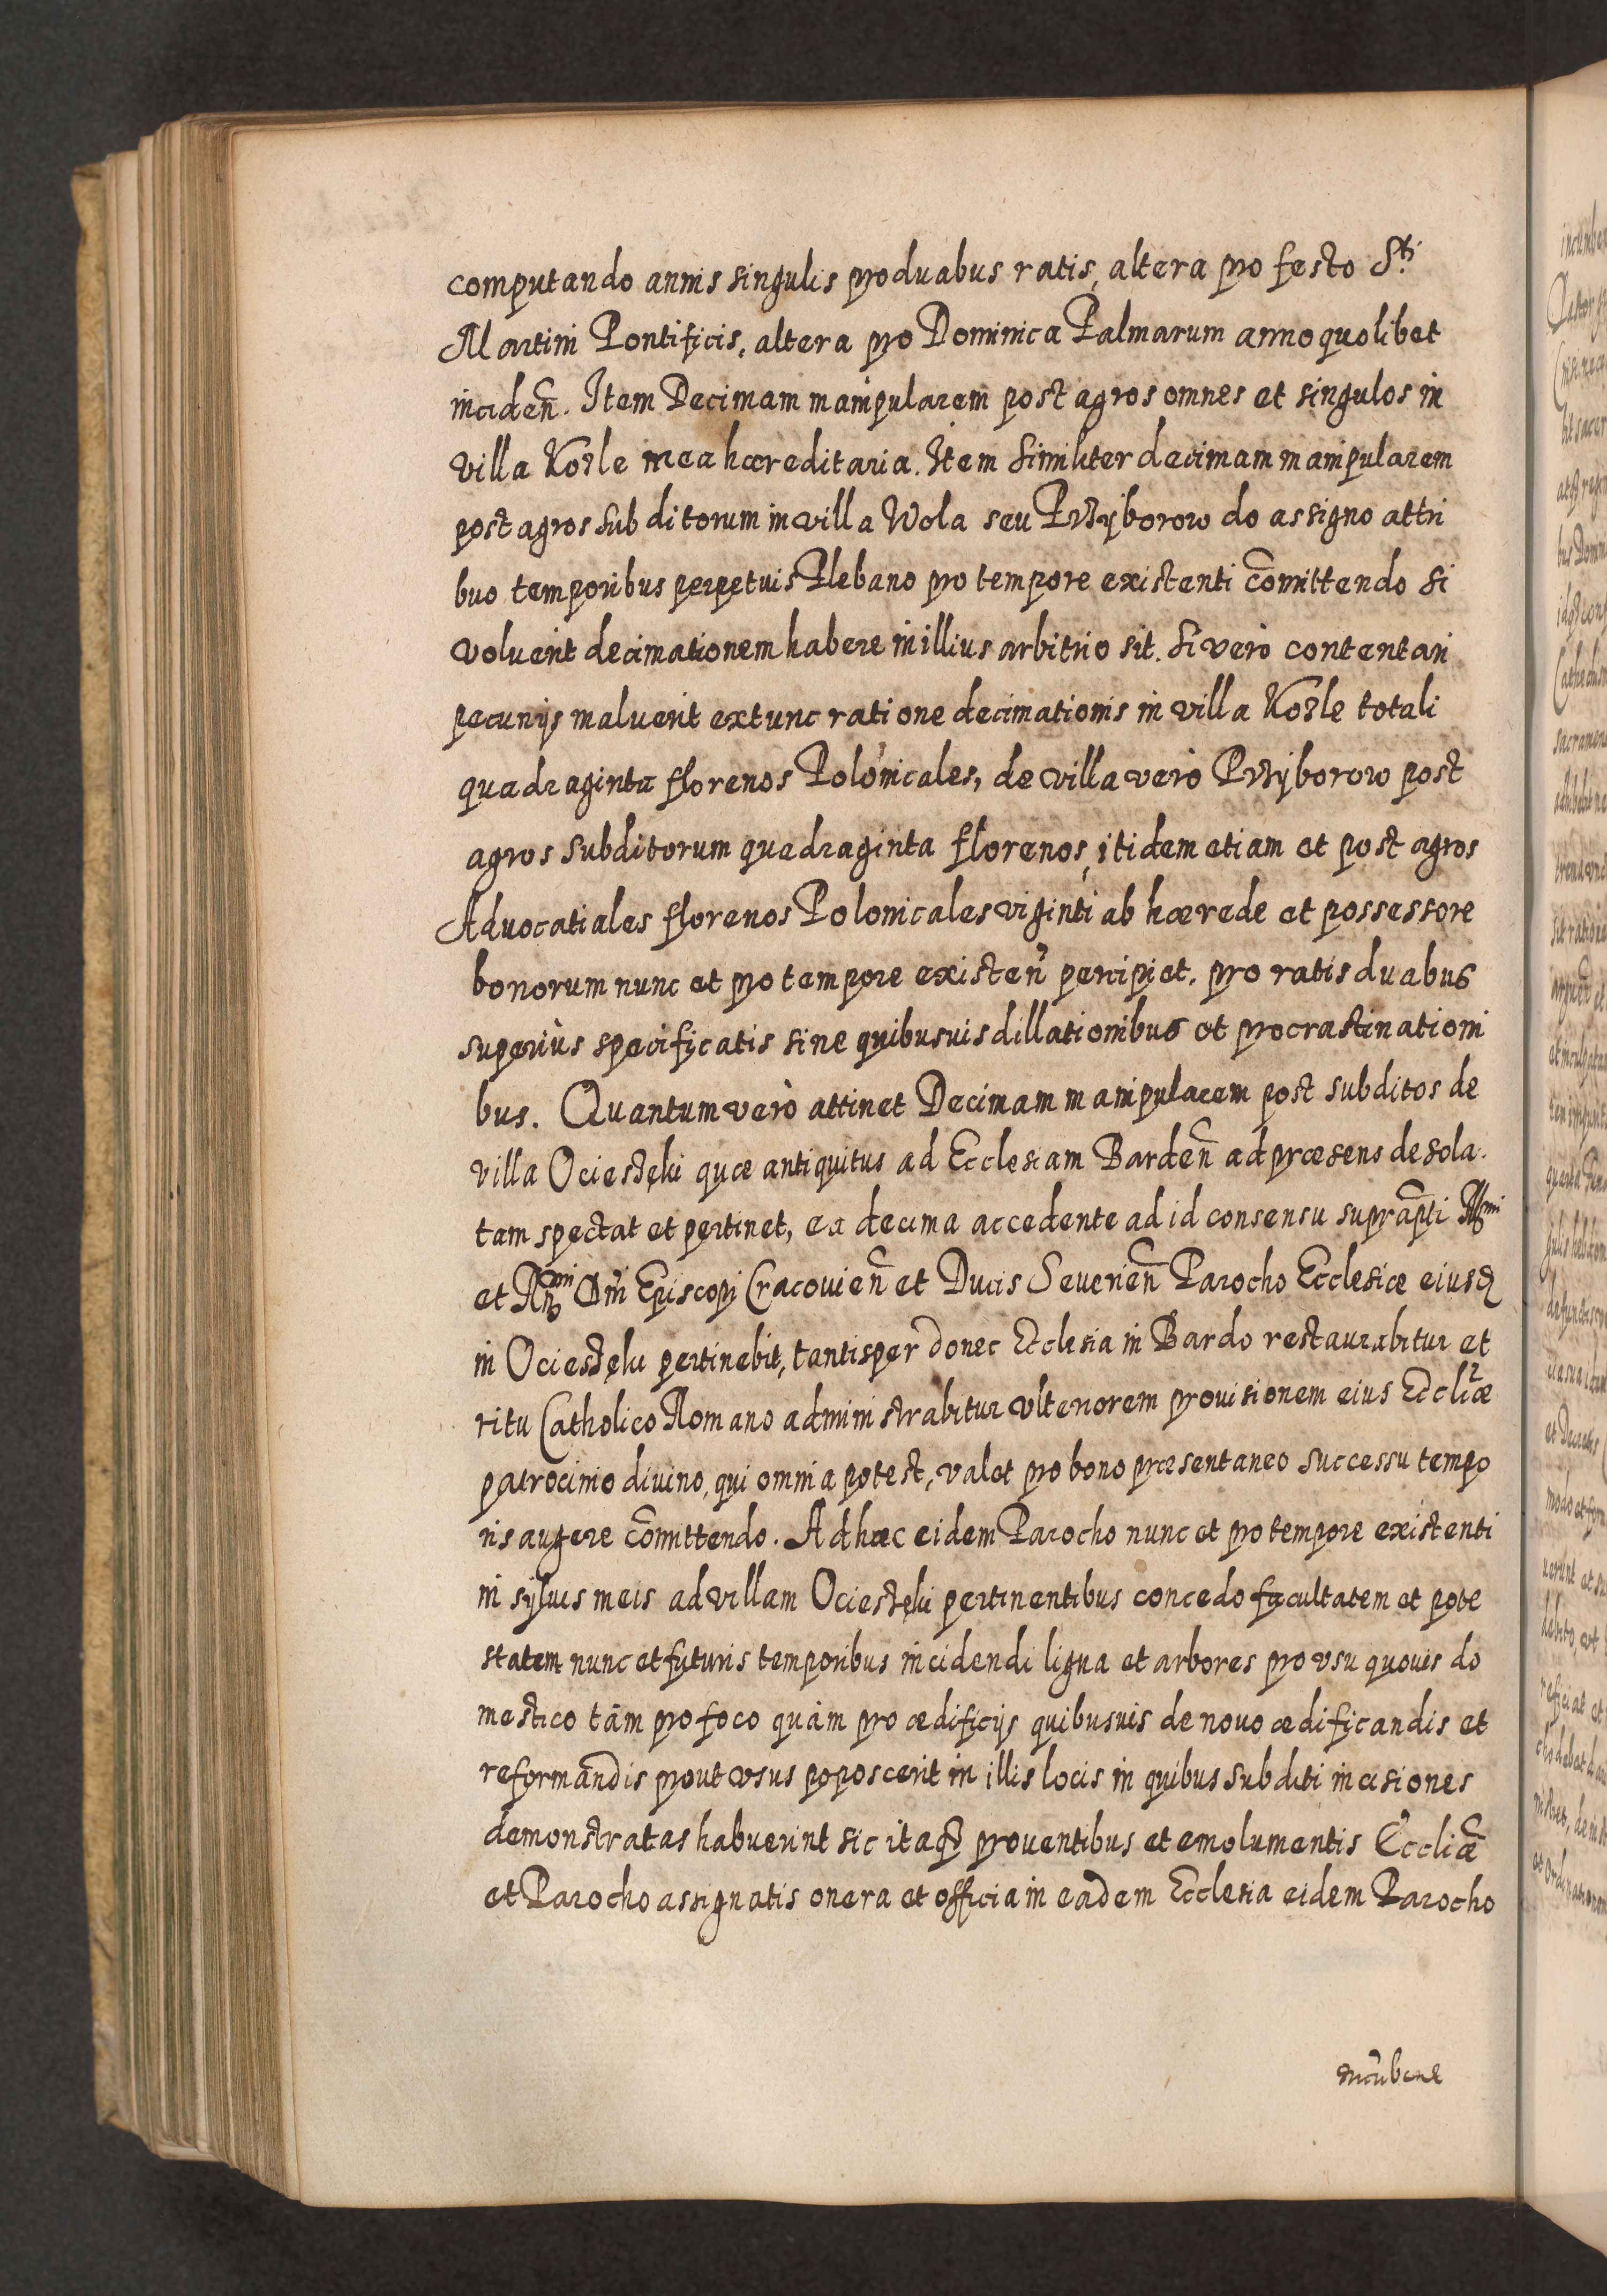 computando annis singulis pro duabus ratis, altera pro festo S.ti
Martini Pontificis, altera pro Dominica Palmarum anno quolibet
inciden̄. Item Decimam manipularem post agros omnes et singulos in
villa Kozle mea hæreditaria. Item similiter decimam manipularem
post agros subditorum in villa Wola seu Przÿborow do assigno attri
buo temporibus perpetuis Plebano pro tempore existenti com̄ittendo si
voluerit decimationem habere in illius arbitrio sit. Si verò contentari
pecunijs maluerit extunc ratione decimationis in villa Kozle totali
quadraginta florenos Polonicales, de villa verò Przÿborow post
agros subditorum quadraginta florenos, itidem etiam et post agros
Advocatiales florenos Polonicales viginti ab hærede et possessore
bonorum nunc et pro tempore existen̄ percipiet. pro ratis duabus
superiùs specificatis sine quibusuis dillationibus et procrastinationi
bus. Quantum verò attinet Decimam manipularem post subditos de
villa Ociestęki quæ antiquitus ad Ecclesiam Barden̄ ad præsens desola.
tam spectat et pertinet, ea decima accedente ad id consensu supràpti Illmi
et Rn̄di Dn̄i Episcopi Cracouien̄ et Ducis Seuerien̄ Parocho Ecclesiæ eiusd
in Ociestęki pertinebit, tantisper donec Ecclesia in Bardo restaurabitur et
ritu Catholico Romano administrabitur vlteriorem prouisionem eius Eccliæ
patrocinio diuino, qui omnia potest, valet pro bono præsentaneo successu tempo
ris augere com̄ittendo. Ad hæc eidem Parocho nunc et pro tempore existenti
in syluis meis ad villam Ociestęki pertinentibus concedo facultatem et pote
statem nunc et futuris temporibus incidendi ligna et arbores pro vsu quouis do
mestico tàm pro foco quàm pro ædificijs quibusuis de nouo ædificandis et
reformandis prout vsus poposcerit in illis locis in quibus subditi incisiones
demonstratas habuerint sic itaq prouentibus et emolumentis Eccliæ
et Parocho assignatis onera et officia in eadem Ecclesia eidem Parocho